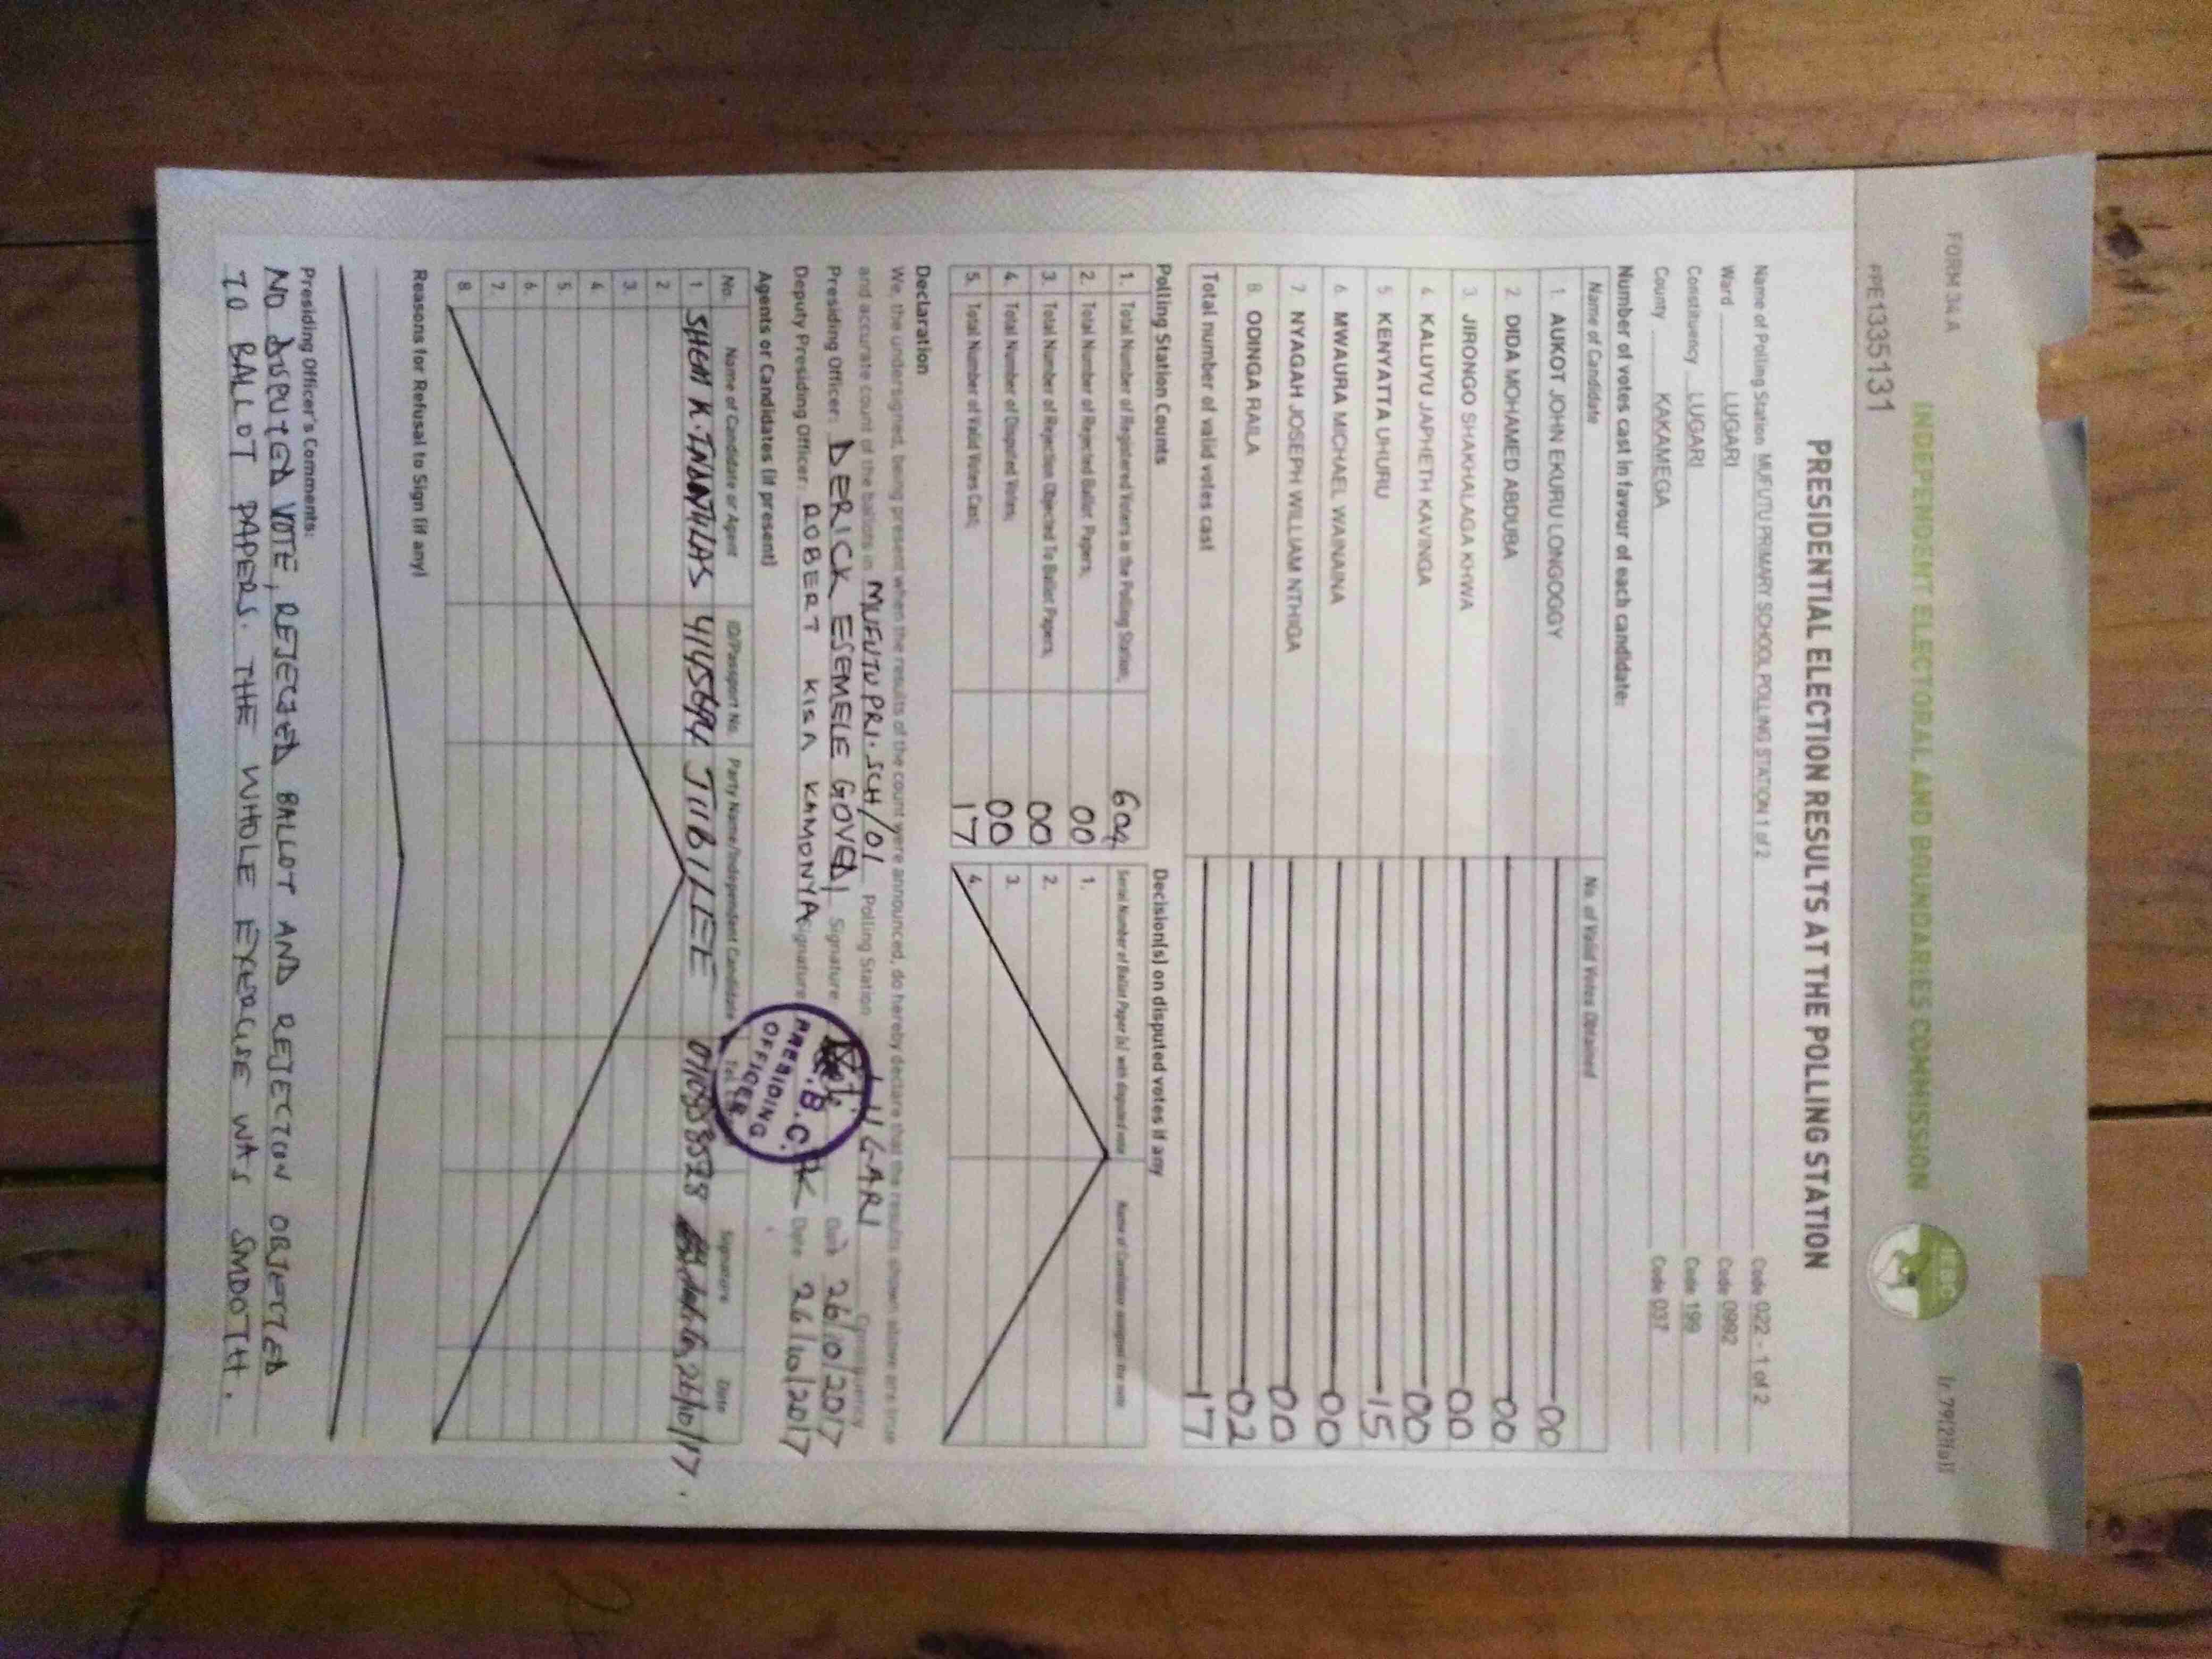 FORM 34 A
INDEPENDENT ELECTORAL AND BOUNDARIES COMMISSION
IEBC
PPE1335131
PRESIDENTIAL ELECTION RESULTS AT THE POLLING STATION
Name of Polling Station MUFUTU PRIMARY SCHOOL POLLING STATION 1 of 2 Code 022 - 1 of 2
Ward LUGARI Code 0992
Constituency LUGARI Code 199
County KAKAMEGA Code 037
Number of votes cast in favour of each candidate:
Name of Candidate No. of Valid Votes Obtained
1. AUKOT JOHN EKURU LONGOGGY 00
2. DIDA MOHAMED ABDUBA 00
3. JIRONGO SHAKHALAGA KHWA 00
4. KALUYU JAPHETH KAVINGA 00
5. KENYATTA UHURU 15
6. MWAURA MICHAEL WAINAINA 00
7. NYAGAH JOSEPH WILLIAM NTHIGA 00
8. ODINGA RAILA 02
Total number of valid votes cast 17
Polling Station Counts Decision(s) on disputed votes if any
1. Total Number of Registered Voters in the Polling Station; Serial Number of Ballot Paper (s) with disputed vote
2. Total Number of Rejected Ballot Papers; 00 1.
3. Total Number of Rejection Objected To Ballot Papers; 00 2.
4. Total Number of Disputed Votes; 00 3.
5. Total Number of Valid Votes Cast; 17 4.
Declaration
We, the undersigned, being present when the results of the count were announced, do hereby declare that the results shown above are true
and accurate count of the ballots in MUFUTU PRI. SCH/01 Polling Station LUGARI Constituency
Presiding Officer: DERICK ESEMELE GOVEDI Signature Date 26/10/2017
Deputy Presiding Officer: ROBERT KISA KAMONYA Signature Date 26/10/2017
PRESIDING
OFFICER
Agents or Candidates (if present)
No. Name of Candidate or Agent ID/Passport No. Party Name/Independent Candidate Tel. Signature Date
1 SHEM K. JUBILEE 26/10/17.
2
3.
4
5.
6.
7.
8.
Reasons for Refusal to Sign (if any)
Presiding Officer's Comments:
NO DISPUTED VOTE, REJECTED BALLOT AND REJECTION OBJECTED
TO BALLOT PAPERS. THE WHOLE EXERCISE WAS SMOOTH.